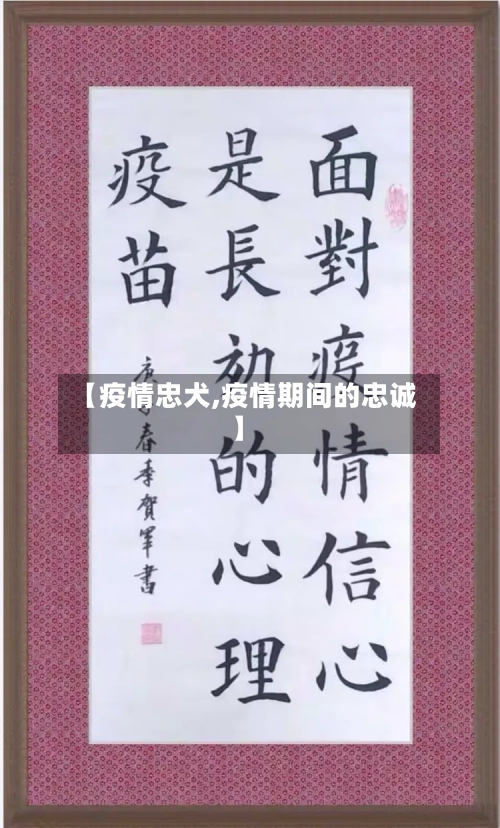 面對疫情信心
是長効的心理
疫苗
庚子春季賀軍書
【疫情忠犬,疫情期间的忠诚
】